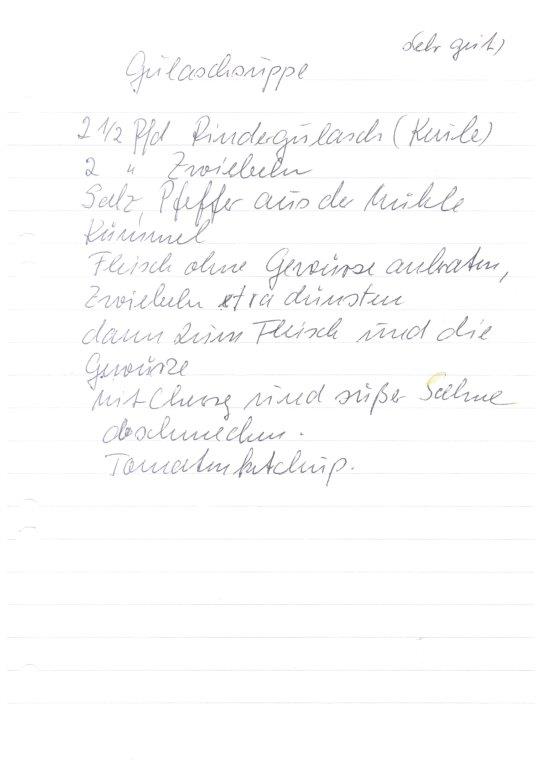 Sehr gut!
Gulaschsuppe
2 1/2 Pfd Rindergulasch (Keule)
2 " Zwiebeln
Salz, Pfeffer aus der Mühle
Kümmel
Fleisch ohne Gewürze anbraten,
Zwiebeln extra dünsten
dann zum Fleisch und die
Gewürze
mit und süßer Sahne
abschmecken.
Tomatenketchup.